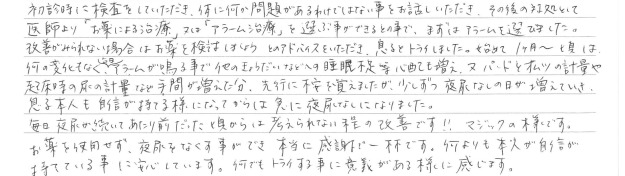 初診時に検査をしていただき、体に何か問題があるわけではない事をお話しいただき、その後の対処として
医師より「お薬による治療」又は「アラーム治療」を選ぶ事ができるとの事で、まずはアラームを選びました。
改善がみられない場合はお薬を検討しましょうとのアドバイスをいただき、息子とトライしました。始めて1ヶ月〜頃は、
何の変化もなく、アラームが鳴る事で他のきょうだいなどへの睡眠不足等心配も増え、又パッドとオムツの計量や
起床時の尿の計量など手間が増えた分、先行に不安を覚えましたが、少しずつ夜尿なしの日が増えていき、
息子本人も自信が持てる様になってからは急に夜尿なしになりました。
毎日夜尿が続いていてあたり前だった頃からは考えられない程の改善です!! マジックの様です。
お薬を使用せず、夜尿をなくす事ができ 本当に感謝で一杯です。何よりも本人が自信が
持てている事に安心しています。何でもトライする事に意義がある様に感じます。